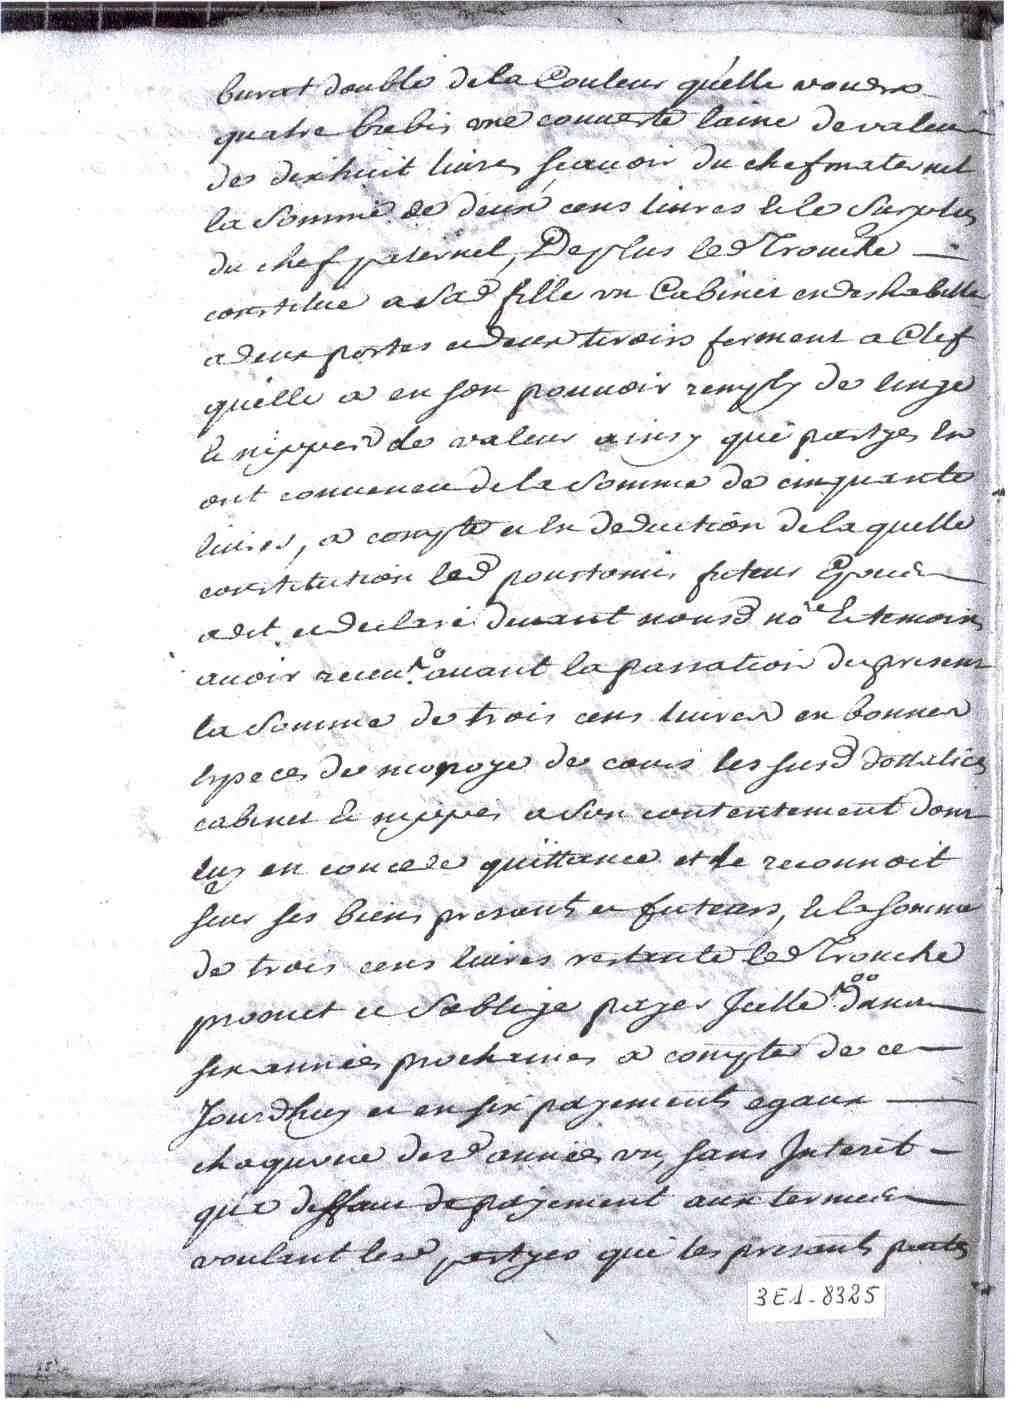 burat doublé de la Couleur quelle voudra
quatre brebis une couverte laine de valeur
des dixhuit livres, scavoir du chef maternel
la Somme de deux cens livres & le Surplus
du chef paternel, De plus led Trouche —
constitue a sad fille un Cabinet en deshabille
a deux portes et deux tiroirs ferment a Clef
quelle a en son pouvoir remply de linge
& nippes de valeur ainsy que partyes en
ont conveneu de la Somme de cinquante
livres, a compte et en deduction de laquelle
constitution led poustomis futeur Epoux —
a dit et declaré devant nousd nore & temoins
avoir receu avant la passation du present
la Somme de trois cens livres en bonnes
Especes de monoye de cours les susd dottalices
cabinet & nippes a Son contentement dont
luy en concede quittance et le reconnoit
sur ses biens presents et futeurs, & la somme
de trois cens livres restante led Trouche
promet et Soblige payer Jcelle dans —
six années prochaines a compter de ce —
Jourdhuy et en six payements egaux —
chaqune desd années un, sans Jnterêt —
qu'a deffaut de payement aux termes —
voulant lesd partyes que les presents pactes
3E1-8325
15